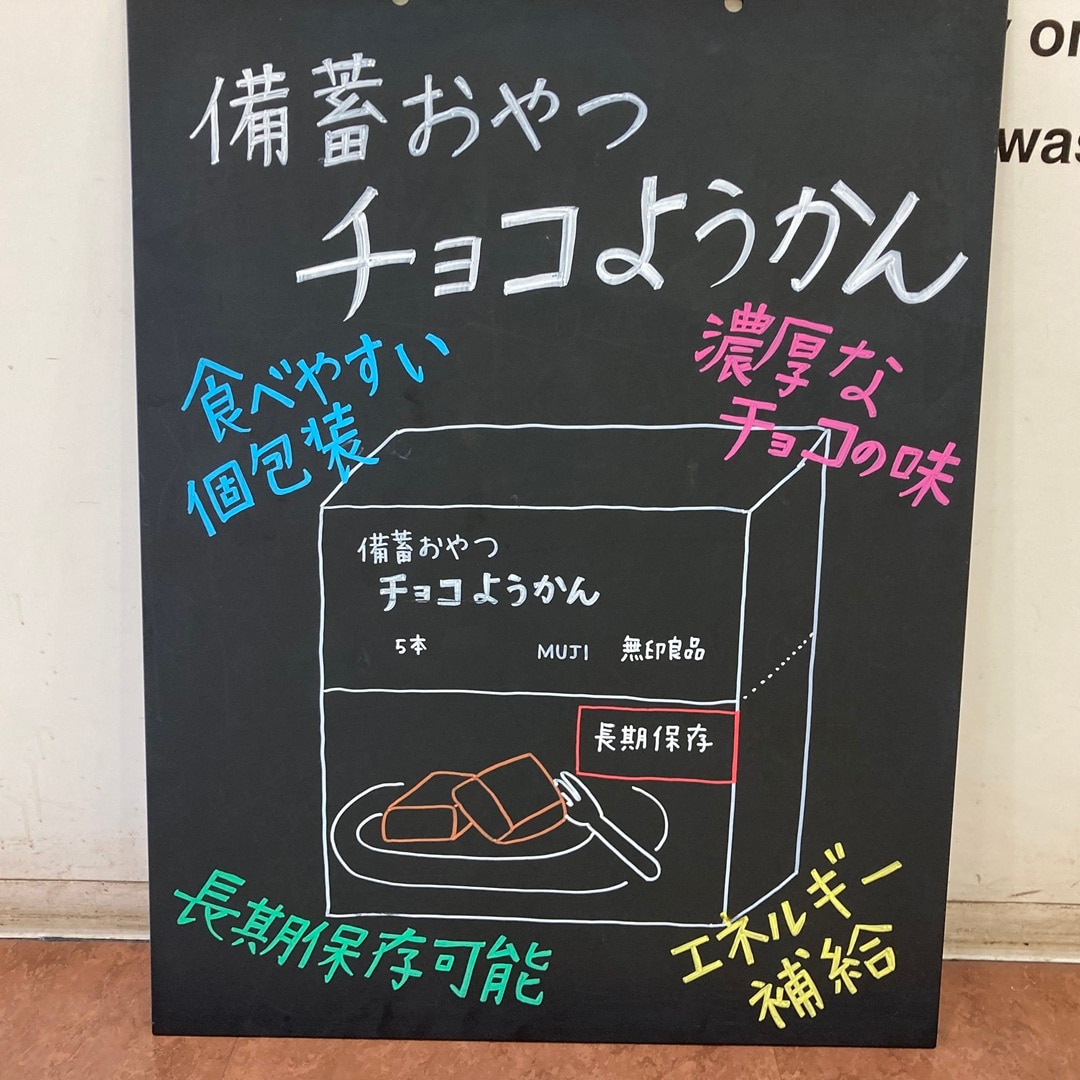 備蓄おやつ
チョコようかん
食べやすい
個包装
濃厚な
チョコの味
備蓄おやつ
チョコようかん
5本 MUJI 無印良品
長期保存
長期保存可能
エネルギー
補給
was